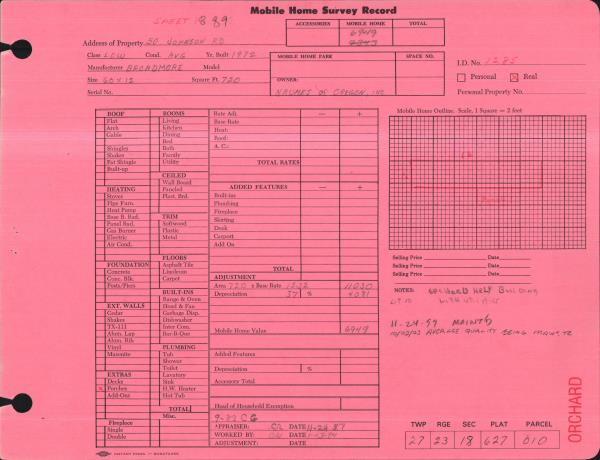 Mobile Home Survey Record
SHEET 889
ACCESSORIES MOBILE HOME TOTAL
6949
Address of Property 50 JOHNSON RD
Class LOW Cond. AVG Yr. Built 1972
Manufacturer BROADMORE Model
Size 60 x 12 Square Ft. 720
Serial No.
MOBILE HOME PARK SPACE NO.
OWNER:
NAUMES OF OREGON, INC
I.D. No. 1285
Personal Real
Personal Property No.
ROOF
Flat
Arch
Gable
Shingles
Shakes
Fat Shingle
Built-up
HEATING
Stoves
Pipe Furn.
Heat Pump
Base B. Rad.
Panel Rad.
Gas Burner
Electric
Air Cond.
FOUNDATION
Concrete
Conc. Blk.
Posts/Piers
EXT. WALLS
Cedar
Shakes
TX-111
Alum. Lap
Alum. Rib
Vinyl
Masonite
EXTRAS
Decks
Porches
Add-Ons
Fireplace
Single
Double
ROOMS
Living
Kitchen
Dining
Bed
Bath
Family
Utility
CEILED
Wall Board
Paneled
Plast. Brd.
TRIM
Softwood
Plastic
Metal
FLOORS
Asphalt Tile
Linoleum
Carpet
BUILT-INS
Range & Oven
Hood & Fan
Garbage Disp.
Dishwasher
Inter Com.
Bar-B-Que
PLUMBING
Tub
Shower
Toilet
Lavatory
Sink
H.W. Heater
Hot Tub
TOTAL
Misc.
Rate Adj. — +
Base Rate
Heat:
Roof:
A. C.:
TOTAL RATES
ADDED FEATURES — +
Built-ins
Plumbing
Fireplace
Skirting
Deck
Carport
Add On
TOTAL
ADJUSTMENT
Area 720 x Base Rate 1532 11030
Depreciation 37 % 4081
Mobile Home Value 6949
Added Features
Depreciation %
Accessory Total
Head of Household Exemption
APPRAISER: DATE 11-24-87
WORKED BY: DATE
ADJUSTMENT: DATE
Mobile Home Outline. Scale, 1 Square = 2 feet
Selling Price Date
Selling Price Date
Selling Price Date
NOTES: ORCHARD HELP BUILDING
11-24-87
AVERAGE QUALITY BEING
ORCHARD
TWP RGE SEC PLAT PARCEL
27 23 18 627 010